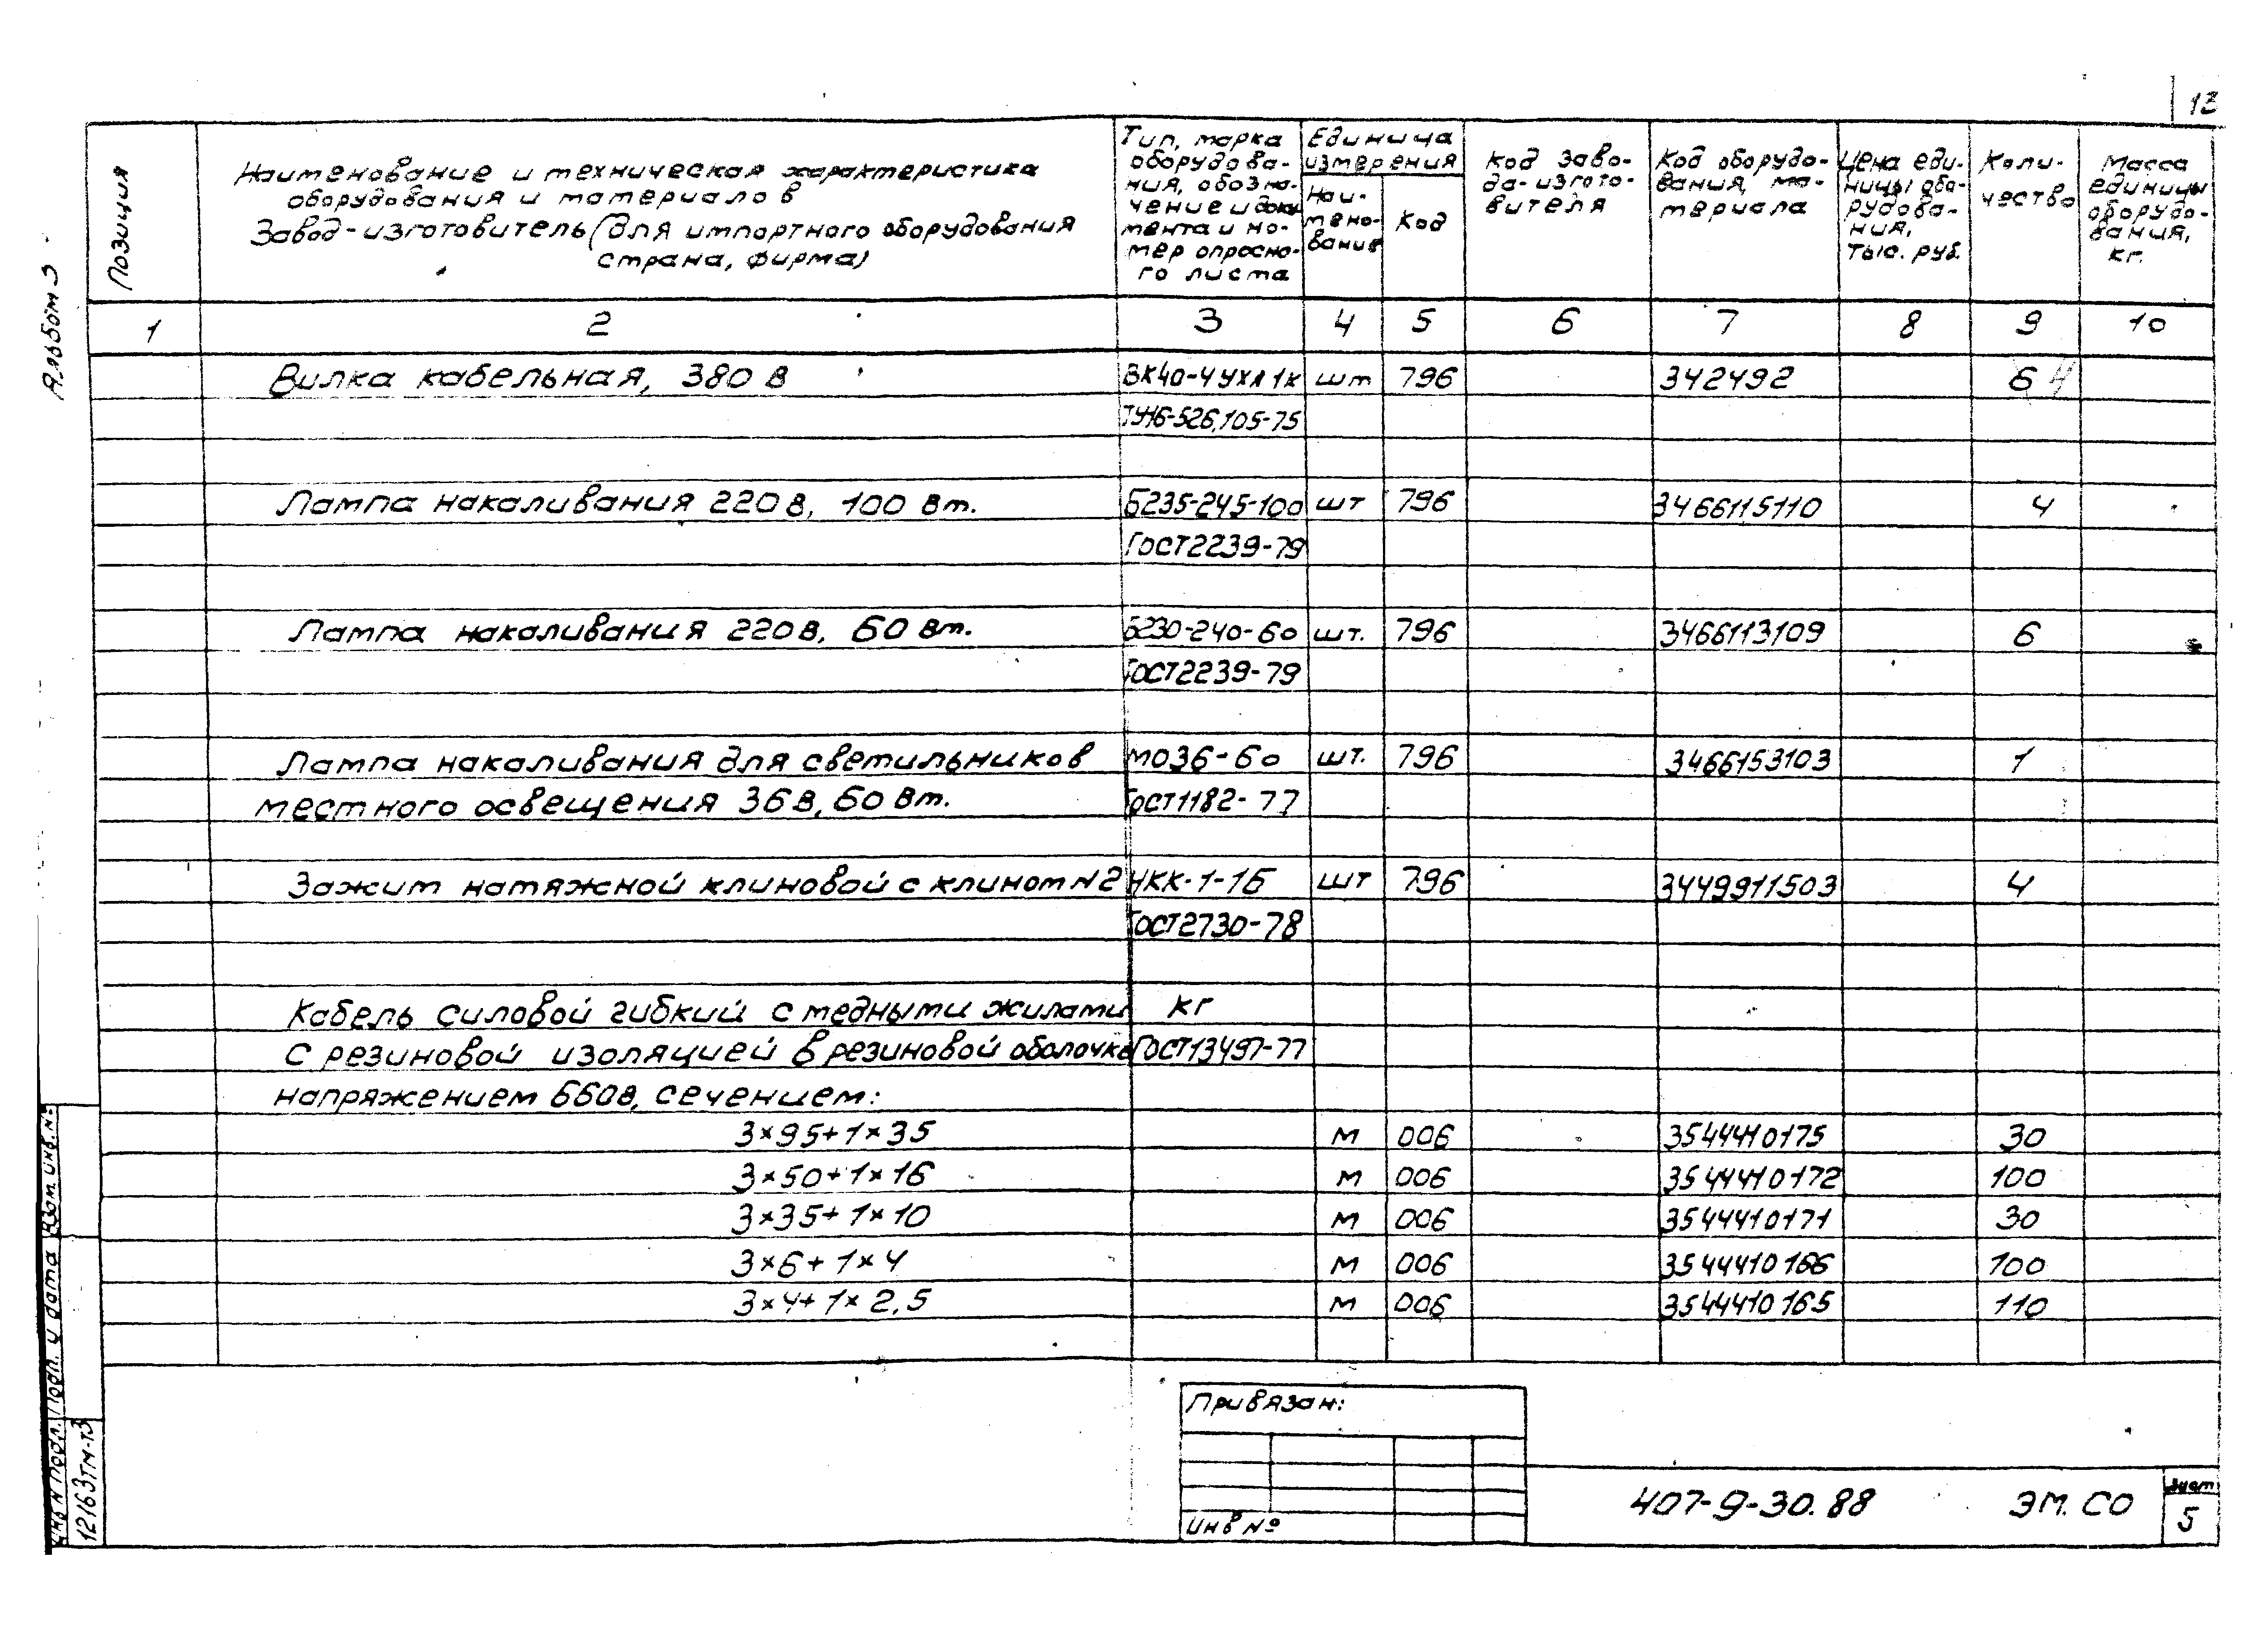 13
Альбом 3
Позиция
Наименование и техническая характеристика
оборудования и материалов
Завод-изготовитель (для импортного оборудования
страна, фирма)
Тип, марка
оборудова-
ния, обозна-
чение и доку-
мента и но-
мер опросно-
го листа
Единица
измерения
Наи-
мено-
вание
Код
Код заво-
да-изгото-
вителя
Код оборудо-
вания, ма-
териала
Цена еди-
ницы обо-
рудова-
ния,
тыс. руб.
Коли-
чество
Масса
единицы
оборудо-
вания,
кг.
1 2 3 4 5 6 7 8 9 10
Вилка кабельная, 380 в ВК40-4УХЛ1К шт 796 342492 6 4
ТУ16-526,105-75
Лампа накаливания 220в, 100 вт. Б235-245-100 шт 796 3466115110 4
ГОСТ2239-79
Лампа накаливания 220в, 60 вт. Б230-240-60 шт. 796 3466113109 6
ГОСТ2239-79
Лампа накаливания для светильников МО36-60 шт. 796 3466153103 1
местного освещения 36в, 60 вт. ГОСТ1182-77
Зажим натяжной клиновой с клином N2 НКК-1-1Б шт 796 3449911503 4
ГОСТ2730-78
Кабель силовой гибкий с медными жилами КГ
с резиновой изоляцией в резиновой оболочке ГОСТ13497-77
напряжением 660в, сечением:
3×95+1×35 м 006 3544410175 30
3×50+1×16 м 006 3544410172 100
3×35+1×10 м 006 3544410171 30
3×6+1×4 м 006 3544410166 100
3×4+1×2,5 м 006 3544410165 110
Привязан:
Инв №
407-9-30.88 ЭМ.СО
Лист
5
Инв N подл. Подп. и дата Взам. инв. N
12163тм-т3